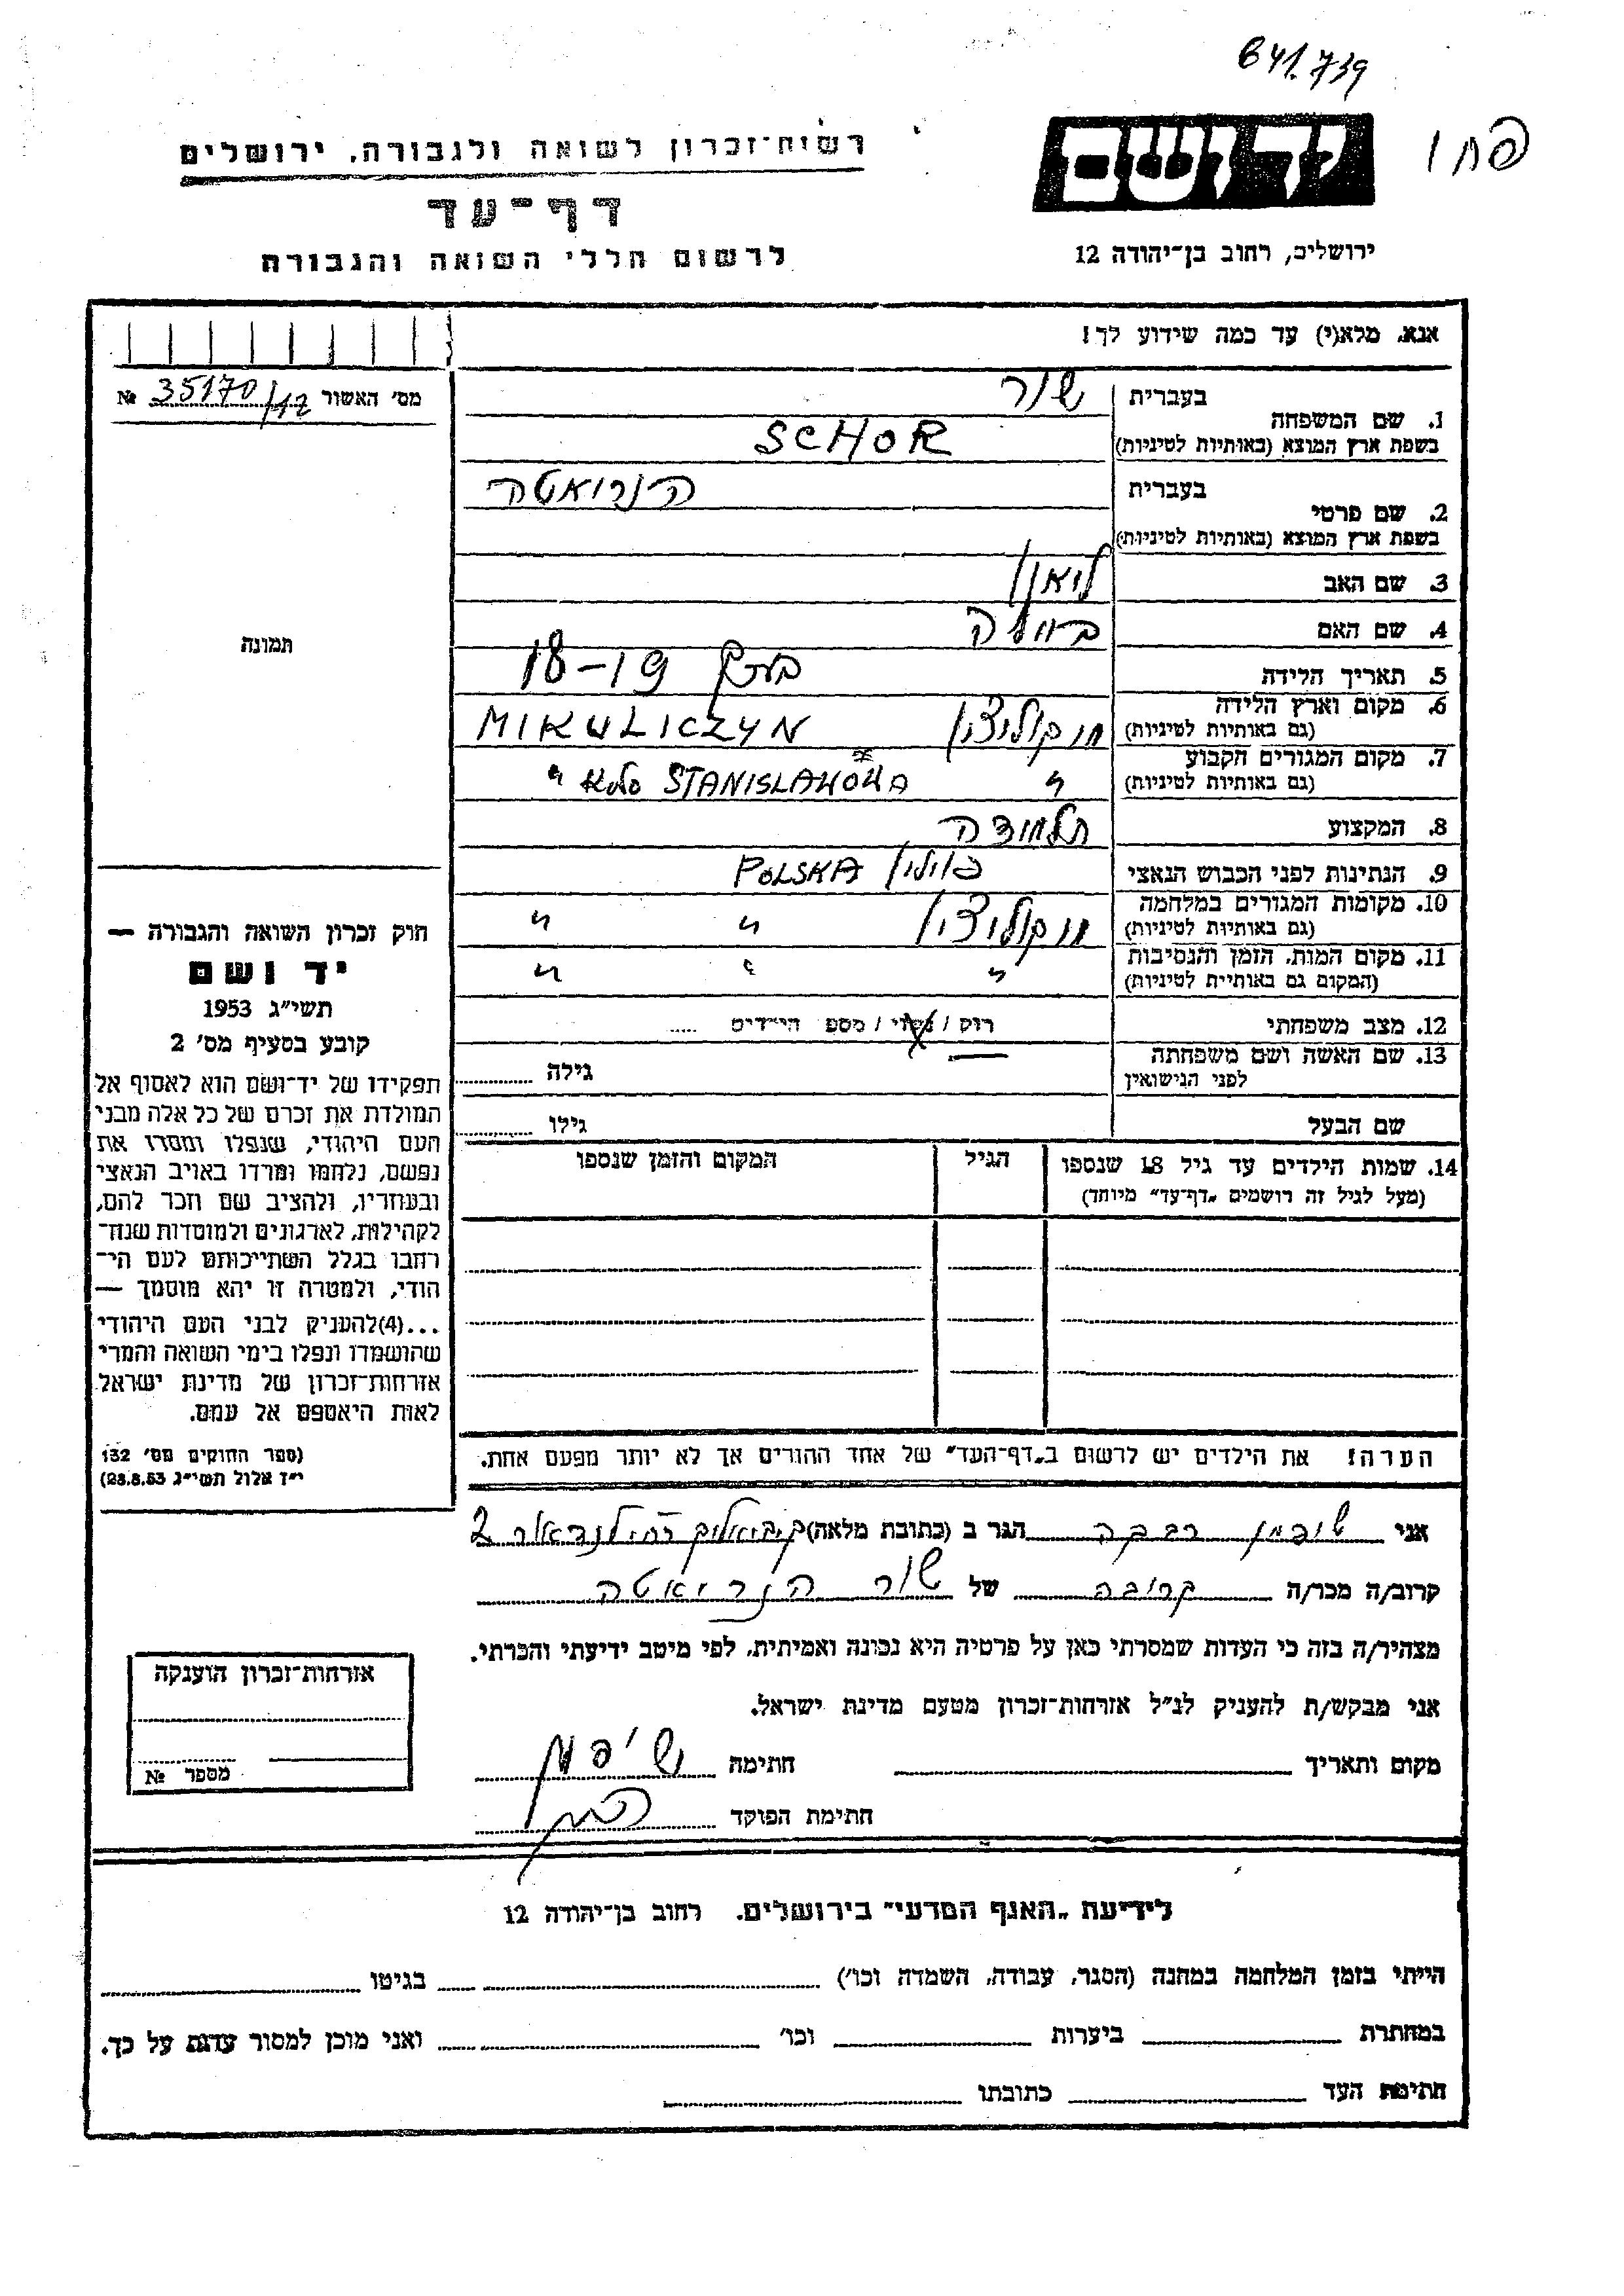 641.739
יד ושם
רשות־זכרון לשואה ולגבורה, ירושלים
דף־עד
לרשום חללי השואה והגבורה
ירושלים, רחוב בן־יהודה 12
אנא, מלא(י) עד כמה שידוע לך!
מס' האשור 35170/12 №
1. שם המשפחה
בעברית שור
בשפת ארץ המוצא (באותיות לטיניות) SCHOR
2. שם פרטי
בעברית הנריאטה
בשפת ארץ המוצא (באותיות לטיניות)
3. שם האב ליאון
4. שם האם
5. תאריך הלידה בערך 18-19
6. מקום וארץ הלידה מיקוליצ'ין MIKULICZYN
(גם באותיות לטיניות)
7. מקום המגורים הקבוע " סלמא KOŁO STANISLAWOWA "
(גם באותיות לטיניות)
8. המקצוע תלמידה
9. הנתינות לפני הכבוש הנאצי פולין POLSKA
10. מקומות המגורים במלחמה מיקוליצ'ין " "
(גם באותיות לטיניות)
11. מקום המות, הזמן והנסיבות " " "
(המקום גם באותיות לטיניות)
12. מצב משפחתי רוק / נשוי / מספר הילדים .....
13. שם האשה ושם משפחתה
לפני הנישואין גילה
שם הבעל גילו
14. שמות הילדים עד גיל 18 שנספו הגיל המקום והזמן שנספו
(מעל לגיל זה רושמים „דף־עד" מיוחד)
הערה! את הילדים יש לרשום ב„דף־העד" של אחד ההורים אך לא יותר מפעם אחת.
תמונה
חוק זכרון השואה והגבורה —
יד ושם
תשי"ג 1953
קובע בסעיף מס' 2
תפקידו של יד־ושם הוא לאסוף אל
המולדת את זכרם של כל אלה מבני
העם היהודי, שנפלו ומסרו את
נפשם, נלחמו ומרדו באויב הנאצי
ובעוזריו, ולהציב שם וזכר להם,
לקהילות, לארגונים ולמוסדות שנח־
רבו בגלל השתייכותם לעם הי־
הודי, ולמטרה זו יהא מוסמך —
...(4)להעניק לבני העם היהודי
שהושמדו ונפלו בימי השואה והמרי
אזרחות־זכרון של מדינת ישראל
לאות היאספם אל עמם.
(ספר החוקים מס' 132
י"ז אלול תשי"ג 28.8.53)
אני שיפמן רבקה הגר ב (כתובת מלאה) 2
קרוב/ה מכר/ה קרובה של שור הנריאטה
מצהיר/ה בזה כי העדות שמסרתי כאן על פרטיה היא נכונה ואמיתית, לפי מיטב ידיעתי והכרתי.
אני מבקש/ת להעניק לנ"ל אזרחות־זכרון מטעם מדינת ישראל.
מקום ותאריך חתימה שיפמן
חתימת הפוקד
אזרחות־זכרון הוענקה
מספר №
לידיעת „האגף המדעי" בירושלים. רחוב בן־יהודה 12
הייתי בזמן המלחמה במחנה (הסגר, עבודה, השמדה וכו') בגיטו
במחתרת ביערות וכו' ואני מוכן למסור עדות על כך.
חתימת העד כתובתו